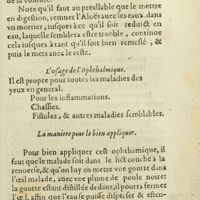 de la volonté.
Note qu'il faut au preallable que le mettre
en digestion, remuer l'Aloës auec les eaux dans
vn mortier, iusques à ce qu'il soit reduict en
eau, laquelle semblera estre trouble, continue
cela iusques à tant qu'il soit bien remeslé, &
puis le mets auec le reste.
L'vsage de l'Ophthalmique.
Il est propre pour toutes les maladies des
yeux en general.
Pour les inflammations.
Chassies.
Fistules, & autres maladies semblables.
La maniere pour le bien appliquer.
Pour bien appliquer cest ophthamique, il
faut que le malade soit dans le lict couché à la
renuerse, & qu'on luy en mette vne goutte dans
l'œil malade, auec vne plume de poule noire:
la goutte estant distillée dedans, il pourra fermer
l'œil, affin que l'eau se puisse disperse & esten-